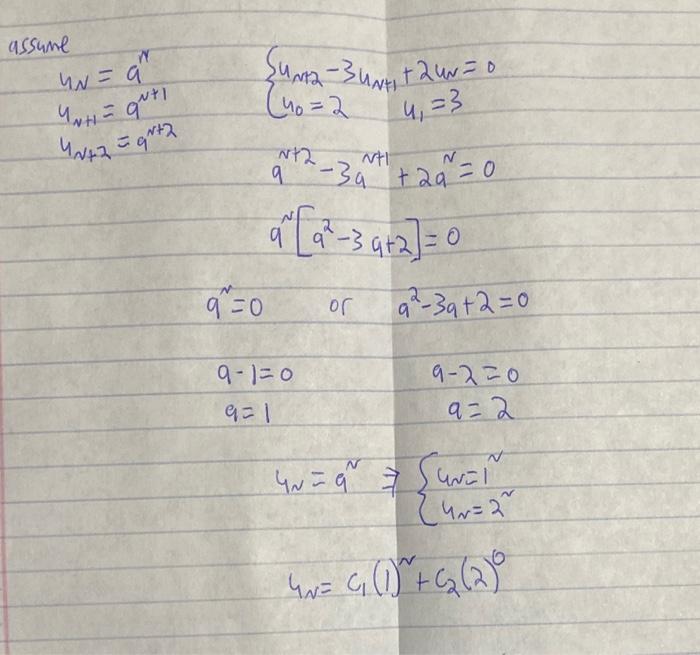 assume
u_N = a^N
u_{N+1} = a^{N+1}
u_{N+2} = a^{N+2}
{ u_{N+2} - 3u_{N+1} + 2u_N = 0
{ u_0 = 2 u_1 = 3
a^{N+2} - 3a^{N+1} + 2a^N = 0
a^N [a^2 - 3a + 2] = 0
a^N = 0 or a^2 - 3a + 2 = 0
a - 1 = 0 a - 2 = 0
a = 1 a = 2
u_N = a^N ⇒ { u_N = 1^N
{ u_N = 2^N
u_N = c_1(1)^N + c_2(2)^0